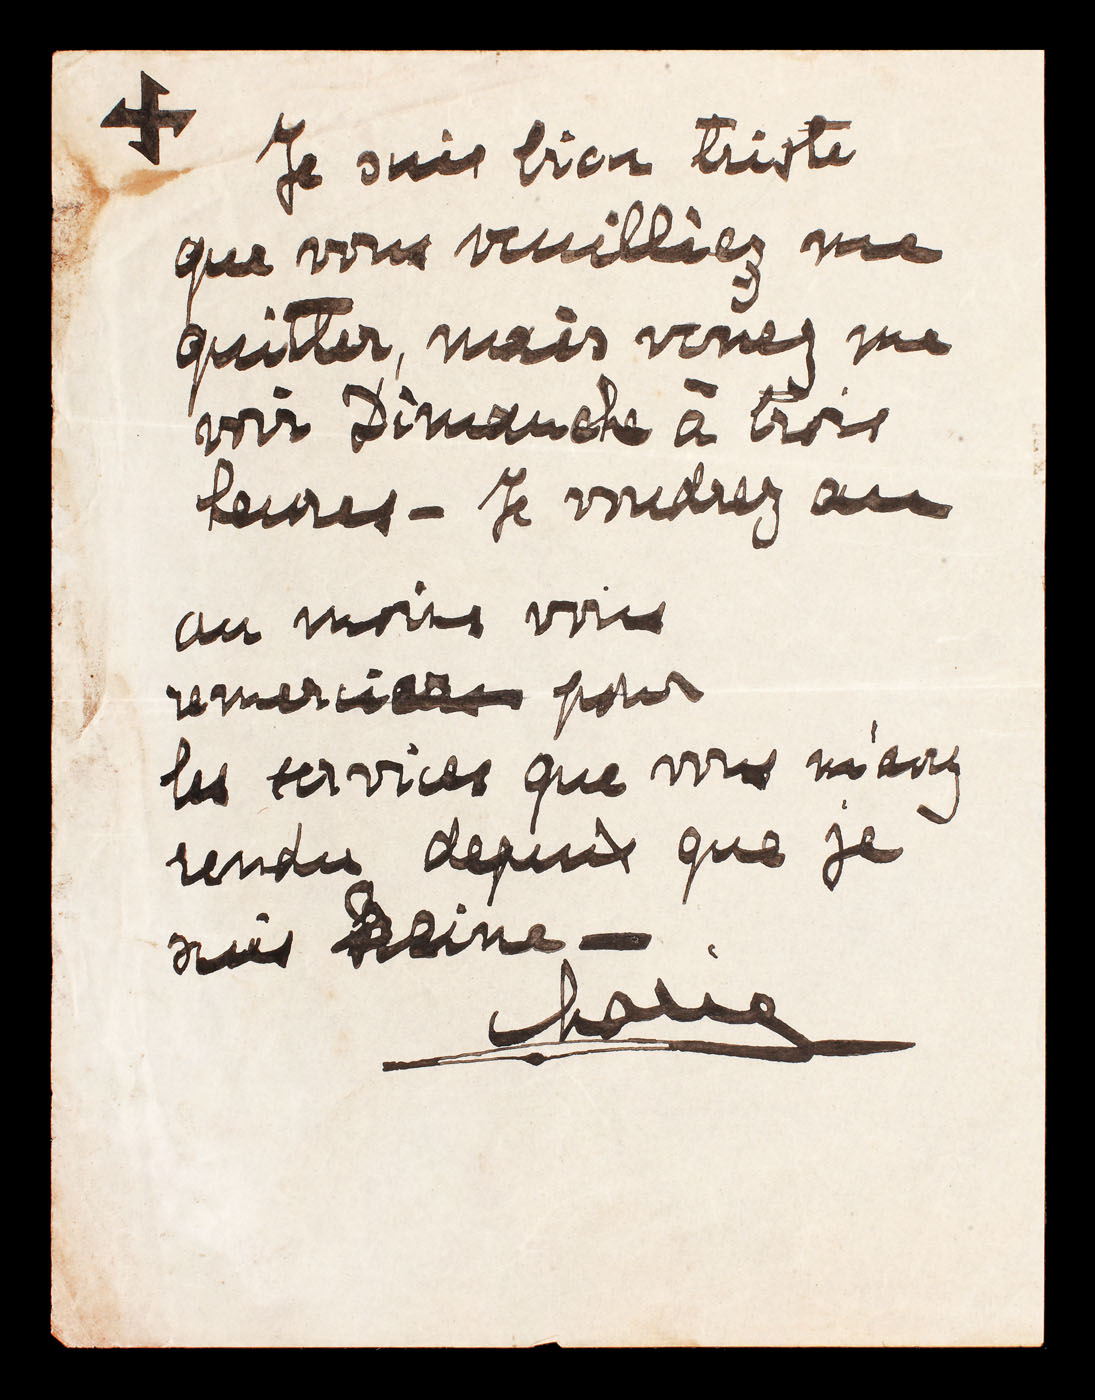 Je suis bien triste
que vous veuilliez me
quitter, mais venez me
voir Dimanche à trois
heures – Je voudrez au
au moins vous
remercier pour
les services que vous m'avez
rendu depuis que je
suis Reine –